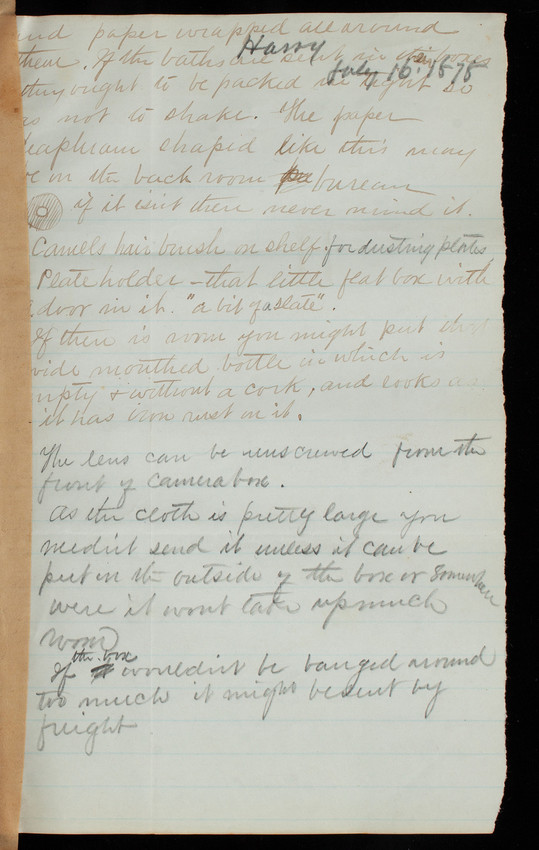 and paper wrapped all around
Harry
them. If the baths are sent in the boxes
July 16th 1878
they ought to be packed in tight so
as not to shake. The paper
diaphram shaped like this may
be in the back room bureau
if it isn't there never mind it.
Camels hair brush on shelf, for dusting plates.
Plate holder - that little flat box with
a door in it. "a bit of a slate".
If there is room you might put that
wide mouthed bottle in which is
empty & without a cork, and looks as
it has iron rust in it.
The lens can be unscrewed from the
front of camera box.
As the cloth is pretty large you
needn't send it unless it can be
put in the outside of the box or somewhere
were it wont take up much
room
If the box wouldn't be banged around
too much it might be sent by
freight